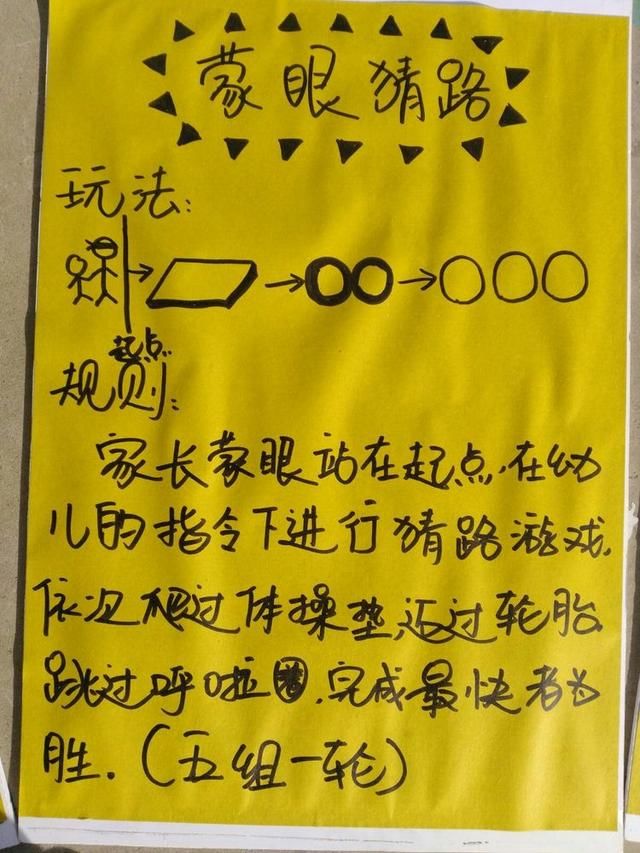 蒙眼猜路
玩法:
起点
规则:
家长蒙眼站在起点,在幼
儿的指令下进行猜路游戏.
依次爬过体操垫,迈过轮胎
跳过呼啦圈,完成最快者为
胜.(五组一轮)